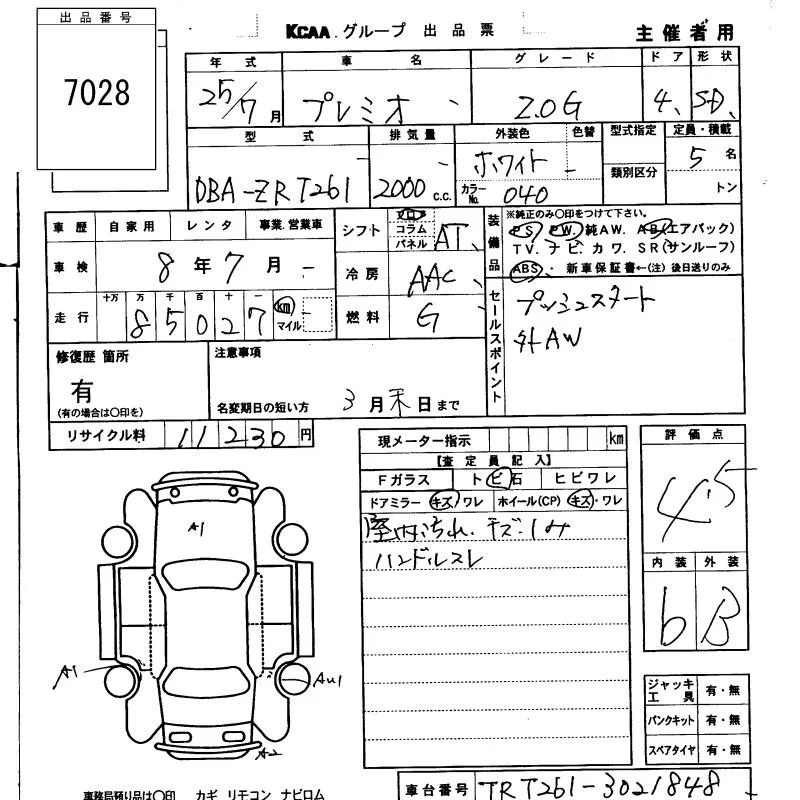 出品番号
7028
KCAA.グループ 出品票
主催者用
年式 車名 グレード ドア 形状
25/7月 プレミオ 2.0G 4 SD
型式 排気量 外装色 色替 型式指定 定員・積載
DBA-ZRT261 2000 c.c. ホワイト 5名
カラーNo. 040 類別区分 トン
車歴 自家用 レンタ 事業.営業車
シフト フロ コラム パネル AT
装備品
※純正のみ〇印をつけて下さい。
PS PW. 純AW. AB(エアバック)
TV. ナビ. カワ. SR(サンルーフ)
ABS. 新車保証書←(注) 後日送りのみ
車検 8年7月
冷房 AAC
走行 十万 万 千 百 十 一
85027 km マイル
燃料 G
セールスポイント
プッシュスタート
外AW
修復歴 箇所
有
(有の場合は〇印を)
注意事項
名変期日の短い方 3月末日まで
リサイクル料 11230円
現メーター指示 km
【査定員記入】
Fガラス トビ石 ヒビワレ
ドアミラー キズ/ワレ ホイール(CP) キズ・ワレ
室内汚れ.キズ.しみ
ハンドルスレ
評価点
4.5
内装 外装
b B
A1
A1
AU1
A2
ジャッキ工具 有・無
パンクキット 有・無
スペアタイヤ 有・無
事務局預り品は〇印 カギ リモコン ナビロム
車台番号 ZRT261-3021848